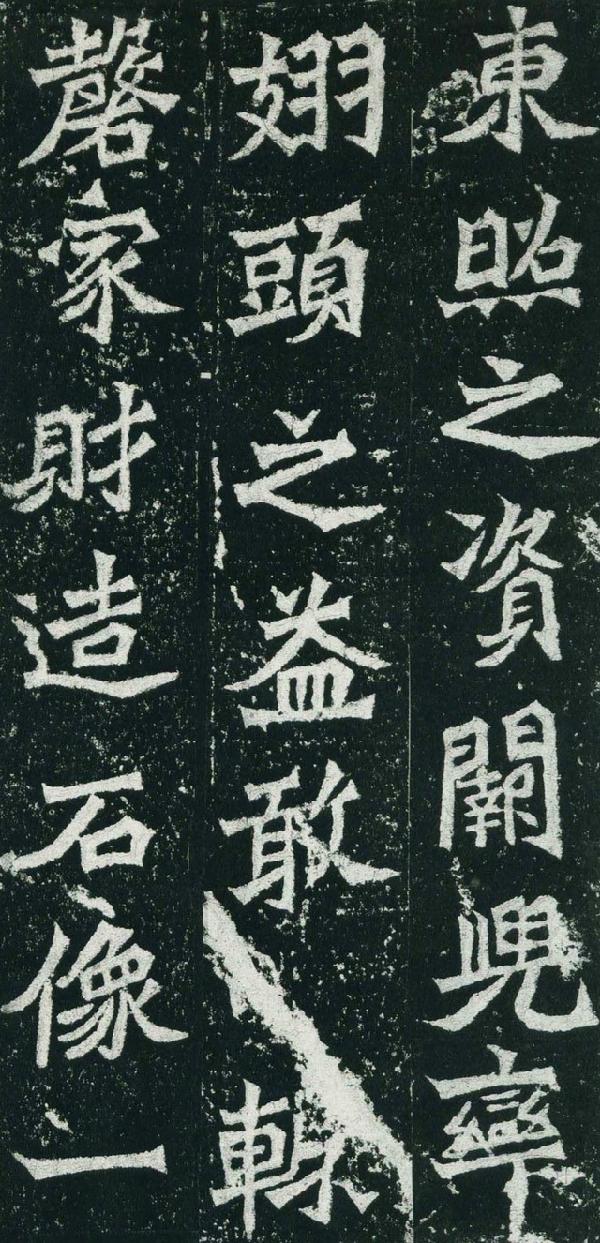 東照之資闕兜率
翅頭之益敢輒
罄家財造石像一